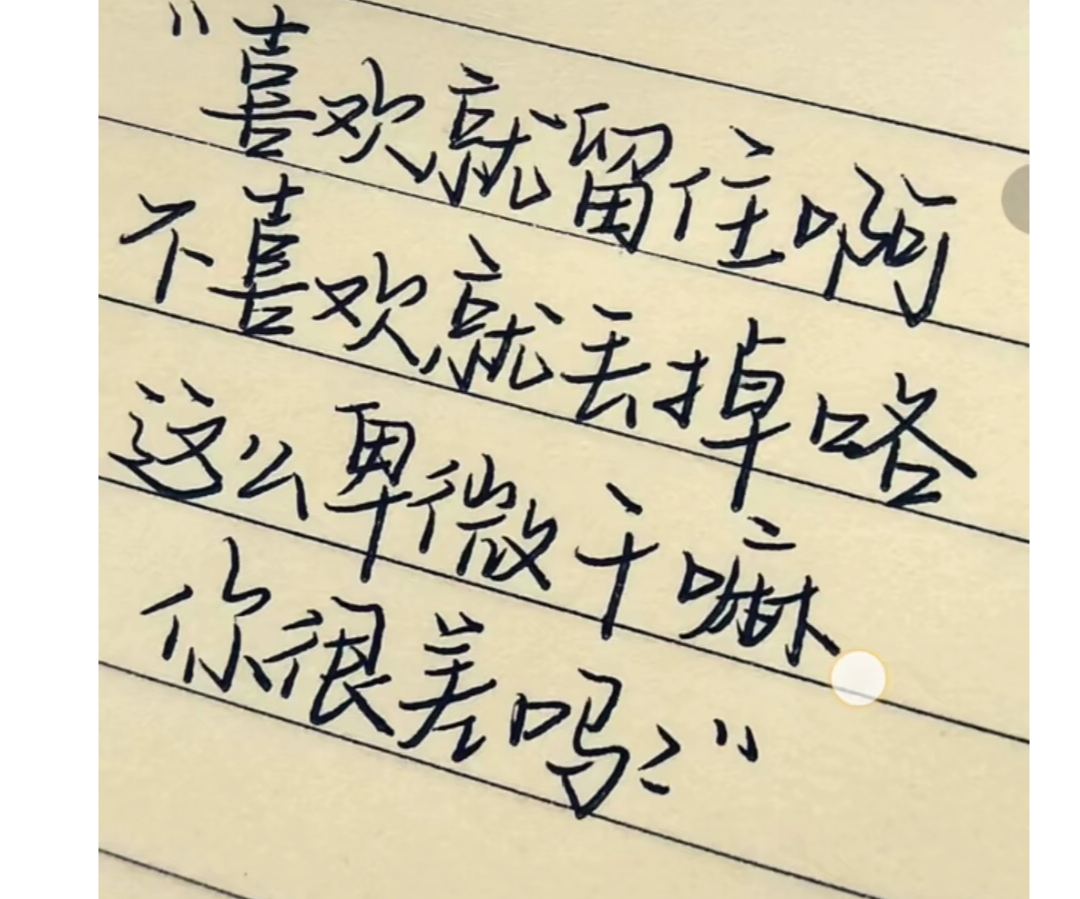 "喜欢就留住啊
不喜欢就丢掉咯
这么卑微干嘛
你很差吗?"